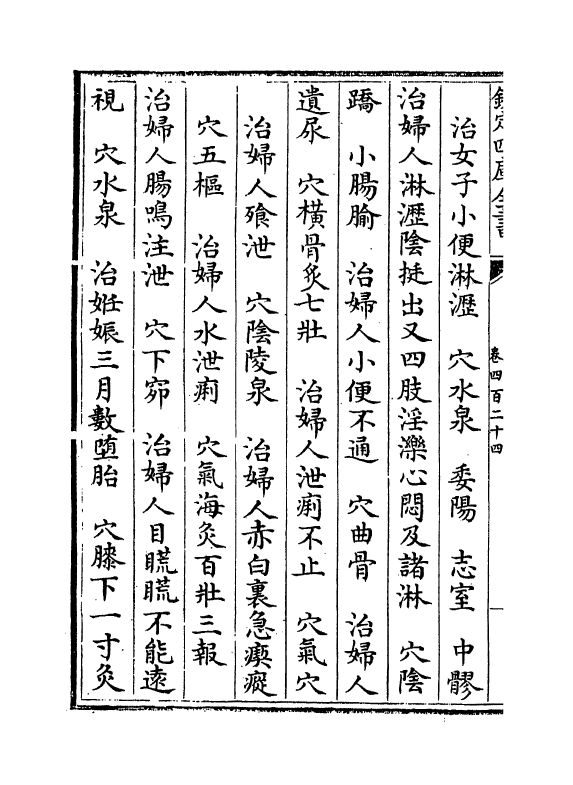 欽定四庫全書
卷四百二十四
治女子小便淋瀝　穴水泉　委陽　志室　中髎
治婦人淋瀝陰挺出又四肢淫濼心悶及諸淋　穴陰
蹻　小腸腧　治婦人小便不通　穴曲骨　治婦人
遺尿　穴橫骨灸七壯　治婦人泄痢不止　穴氣穴
治婦人飱泄　穴陰陵泉　治婦人赤白裏急瘈瘲
穴五樞　治婦人水泄痢　穴氣海灸百壯三報
治婦人腸鳴注泄　穴下窌　治婦人目䀮䀮不能逺
視　穴水泉　治姙娠三月數堕胎　穴膝下一寸灸